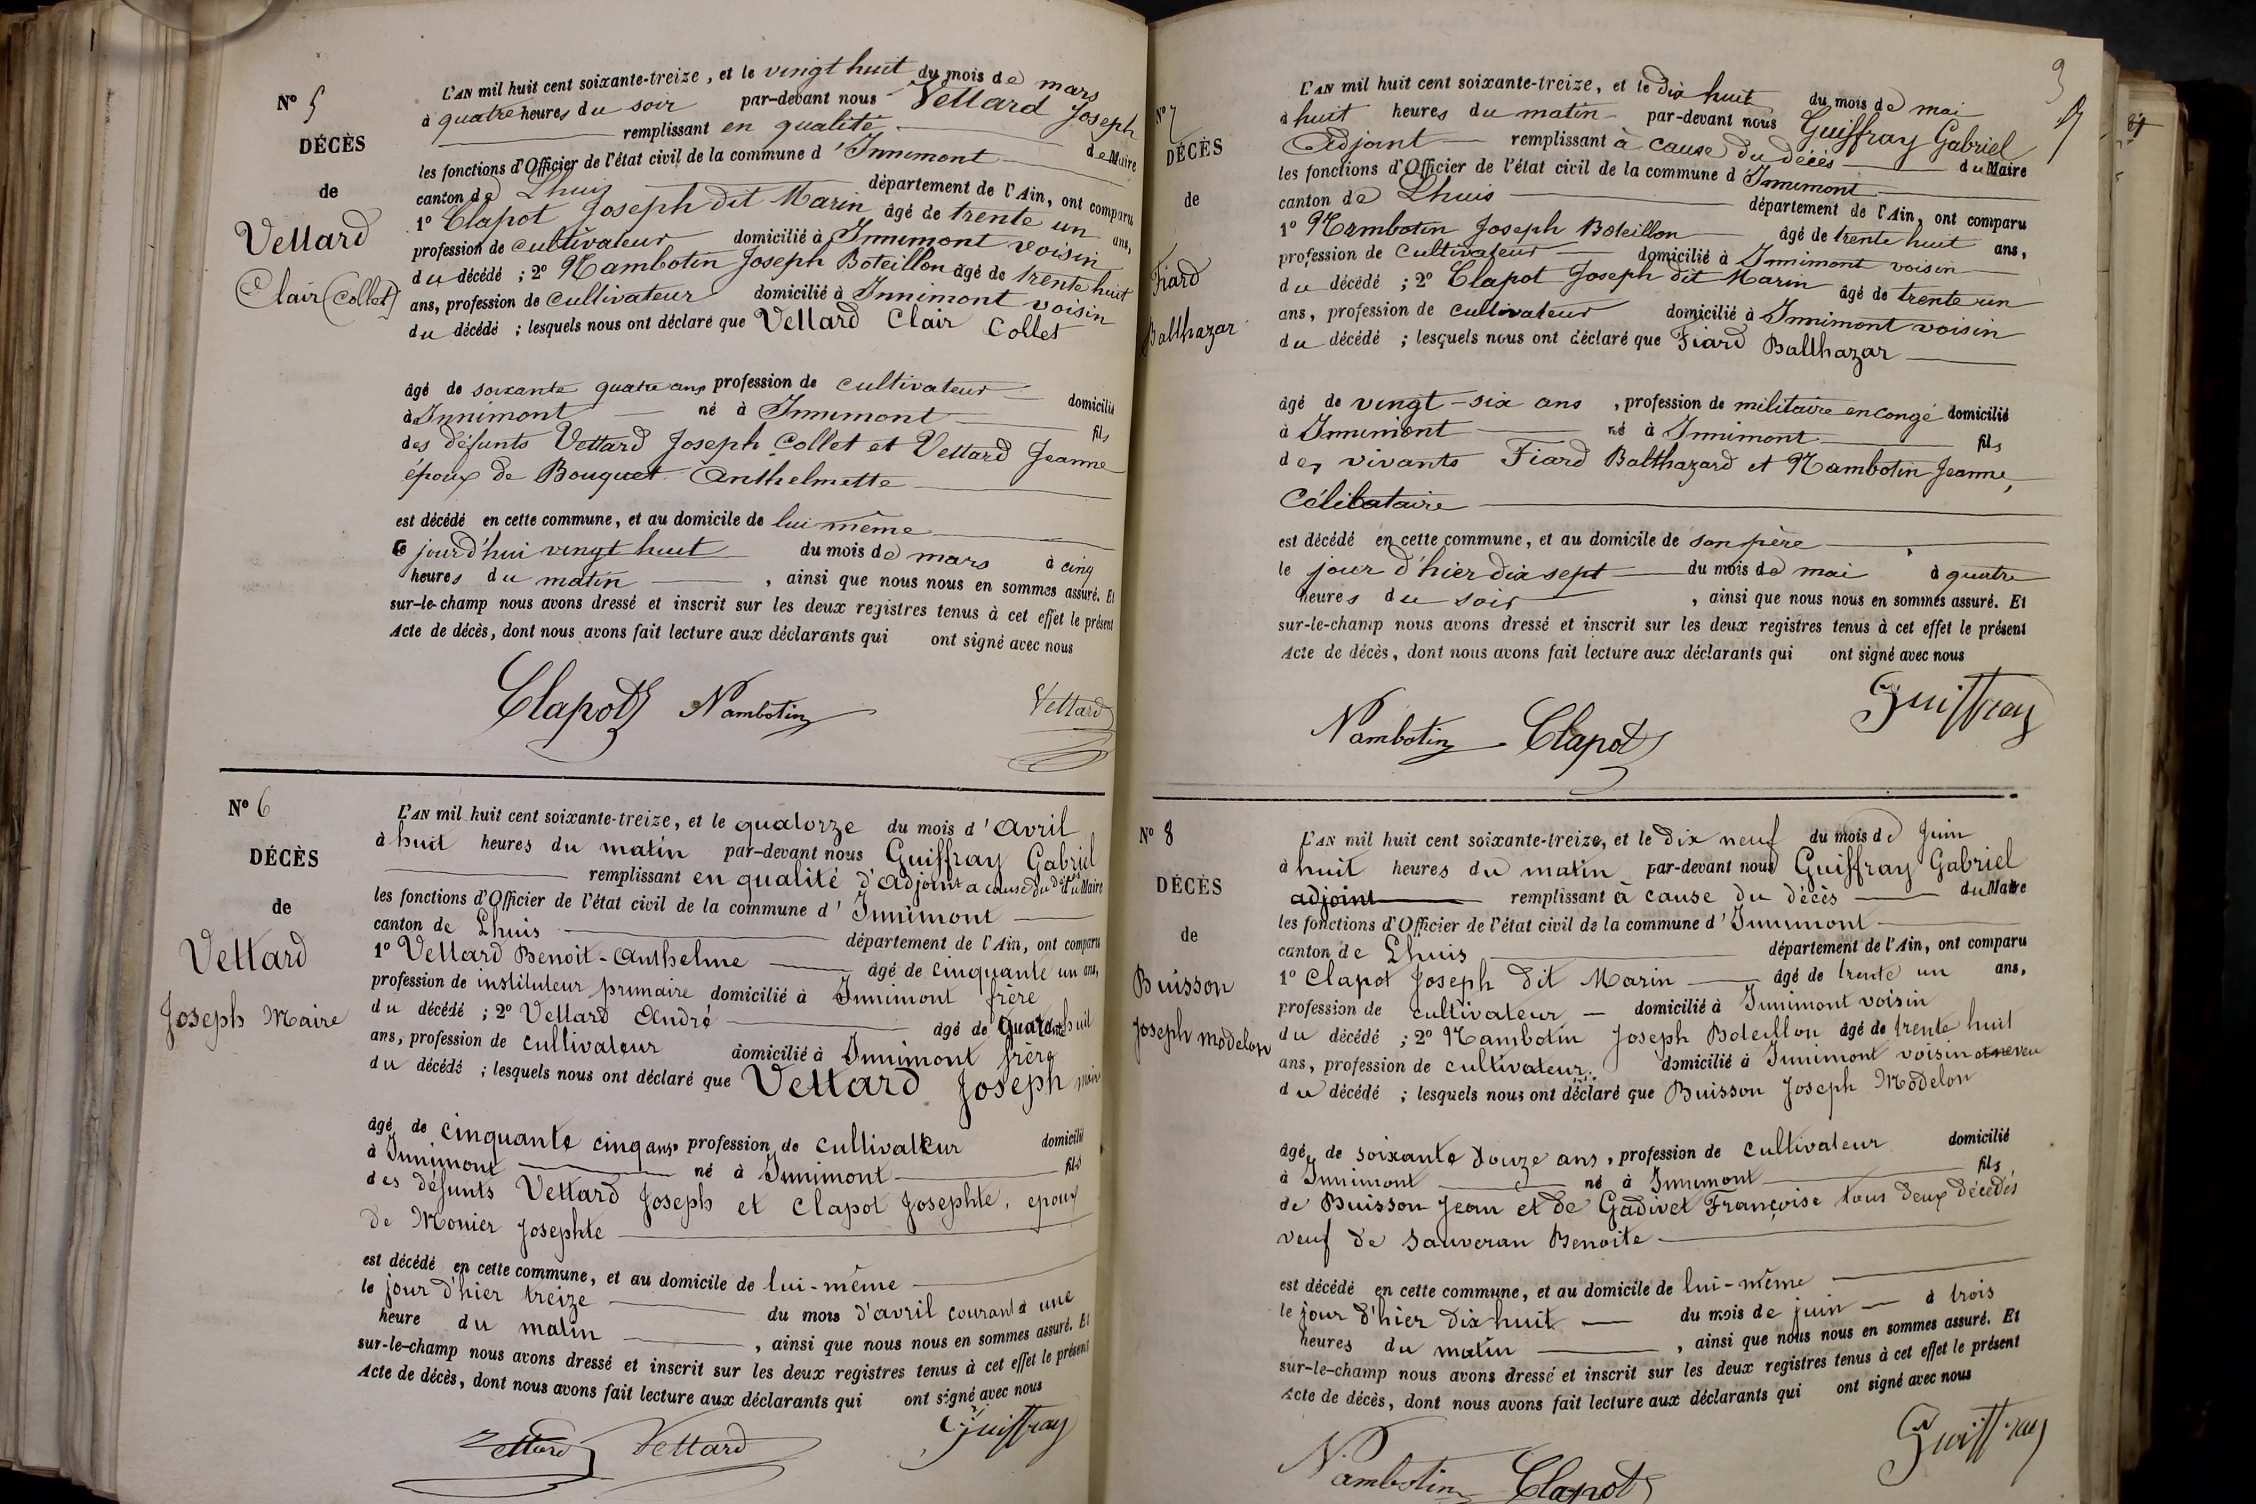 Nº 5
DÉCÈS
de
Vettard
Clair (Collet)
L'AN mil huit cent soixante-treize, et le vingt huit du mois de mars
à quatre heures du soir par-devant nous Vettard Joseph
remplissant en qualité de Maire
les fonctions d'Officier de l'état civil de la commune d'Innimont
canton de Lhuis département de l'Ain, ont comparu
1º Clapot Joseph dit Marin âgé de trente un ans,
profession de cultivateur domicilié à Innimont voisin
du décédé ; 2º Nambotin Joseph Boteillon âgé de trente huit
ans, profession de cultivateur domicilié à Innimont voisin
du décédé ; lesquels nous ont déclaré que Vettard Clair Collet
âgé de soixante quatre ans profession de cultivateur domicilié
à Innimont né à Innimont fils
des défunts Vettard Joseph Collet et Vettard Jeanne
époux de Bouquet Anthelmette
est décédé en cette commune, et au domicile de lui même
ce jourd'hui vingt huit du mois de mars à cinq
heures du matin , ainsi que nous nous en sommes assuré. Et
sur-le-champ nous avons dressé et inscrit sur les deux registres tenus à cet effet le présent
Acte de décès, dont nous avons fait lecture aux déclarants qui ont signé avec nous
Clapot Nambotin Vettard
Nº 6
DÉCÈS
de
Vettard
Joseph Maire
L'AN mil huit cent soixante-treize, et le quatorze du mois d'avril
à huit heures du matin par-devant nous Guiffray Gabriel
remplissant en qualité d'adjoint a cause du décès du Maire
les fonctions d'Officier de l'état civil de la commune d'Innimont
canton de Lhuis département de l'Ain, ont comparu
1º Vettard Benoit-Anthelme âgé de cinquante un ans,
profession de instituteur primaire domicilié à Innimont frère
du décédé ; 2º Vettard André âgé de quarante huit
ans, profession de cultivateur domicilié à Innimont frère
du décédé ; lesquels nous ont déclaré que Vettard Joseph maire
âgé de cinquante cinq ans, profession de cultivateur domicilié
à Innimont né à Innimont fils
des défunts Vettard Joseph et Clapot Josephte, epoux
de Monier Josephte
est décédé en cette commune, et au domicile de lui-même
le jour d'hier treize du mois d'avril courant à une
heure du matin , ainsi que nous nous en sommes assuré. Et
sur-le-champ nous avons dressé et inscrit sur les deux registres tenus à cet effet le présent
Acte de décès, dont nous avons fait lecture aux déclarants qui ont signé avec nous
Vettard Vettard Guiffray
Nº 7
DÉCÈS
de
Fiard
Balthazar
L'AN mil huit cent soixante-treize, et le dix huit du mois de mai
à huit heures du matin par-devant nous Guiffray Gabriel
Adjoint remplissant à cause du décès du Maire
les fonctions d'Officier de l'état civil de la commune d Innimont
canton de Lhuis département de l'Ain, ont comparu
1º Nambotin Joseph Boteillon âgé de trente huit ans,
profession de cultivateur domicilié à Innimont voisin
du décédé ; 2º Clapot Joseph dit Marin âgé de trente un
ans, profession de cultivateur domicilié à Innimont voisin
du décédé ; lesquels nous ont déclaré que Fiard Balthazar
âgé de vingt-six ans, profession de militaire en congé domicilié
à Innimont né à Innimont fils
des vivants Fiard Balthazard et Nambotin Jeanne,
Célibataire
est décédé en cette commune, et au domicile de son père
le jour d'hier dix sept du mois de mai à quatre
heures du soir , ainsi que nous nous en sommes assuré. Et
sur-le-champ nous avons dressé et inscrit sur les deux registres tenus à cet effet le présent
Acte de décès, dont nous avons fait lecture aux déclarants qui ont signé avec nous
Nambotin Clapot Guiffray
Nº 8
DÉCÈS
de
Buisson
Joseph Modelon
L'AN mil huit cent soixante-treize, et le dix neuf du mois de Juin
à huit heures du matin par-devant nous Guiffray Gabriel
adjoint remplissant à cause du décès du Maire
les fonctions d'Officier de l'état civil de la commune d'Innimont
canton de Lhuis département de l'Ain, ont comparu
1º Clapot Joseph dit Marin âgé de trente un ans,
profession de cultivateur domicilié à Innimont voisin
du décédé ; 2º Nambotin Joseph Boteillon âgé de trente huit
ans, profession de cultivateur domicilié à Innimont voisin et neveu
du décédé ; lesquels nous ont déclaré que Buisson Joseph Modelon
âgé de soixante douze ans, profession de cultivateur domicilié
à Innimont né à Innimont fils
de Buisson Jean et de Gadivet Françoise tous deux décédés
veuf de Sauveran Benoite
est décédé en cette commune, et au domicile de lui-même
le jour d'hier dix huit du mois de juin à trois
heures du matin , ainsi que nous nous en sommes assuré. Et
sur-le-champ nous avons dressé et inscrit sur les deux registres tenus à cet effet le présent
Acte de décès, dont nous avons fait lecture aux déclarants qui ont signé avec nous
Nambotin Clapot Guiffray